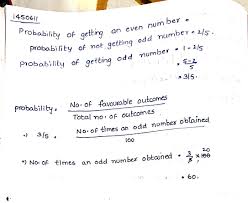 1450611
Probability of getting an even number =
probability of not getting odd number = 2/5.
probability of getting odd number = 1 - 2/5
= 5-2
5
= 3/5.
probability = No. of favourable outcomes
Total no. of outcomes
=) 3/5 = No. of times an odd number obtained
100
=) No. of times an odd number obtained = 3/5 x 100 20
= 60.